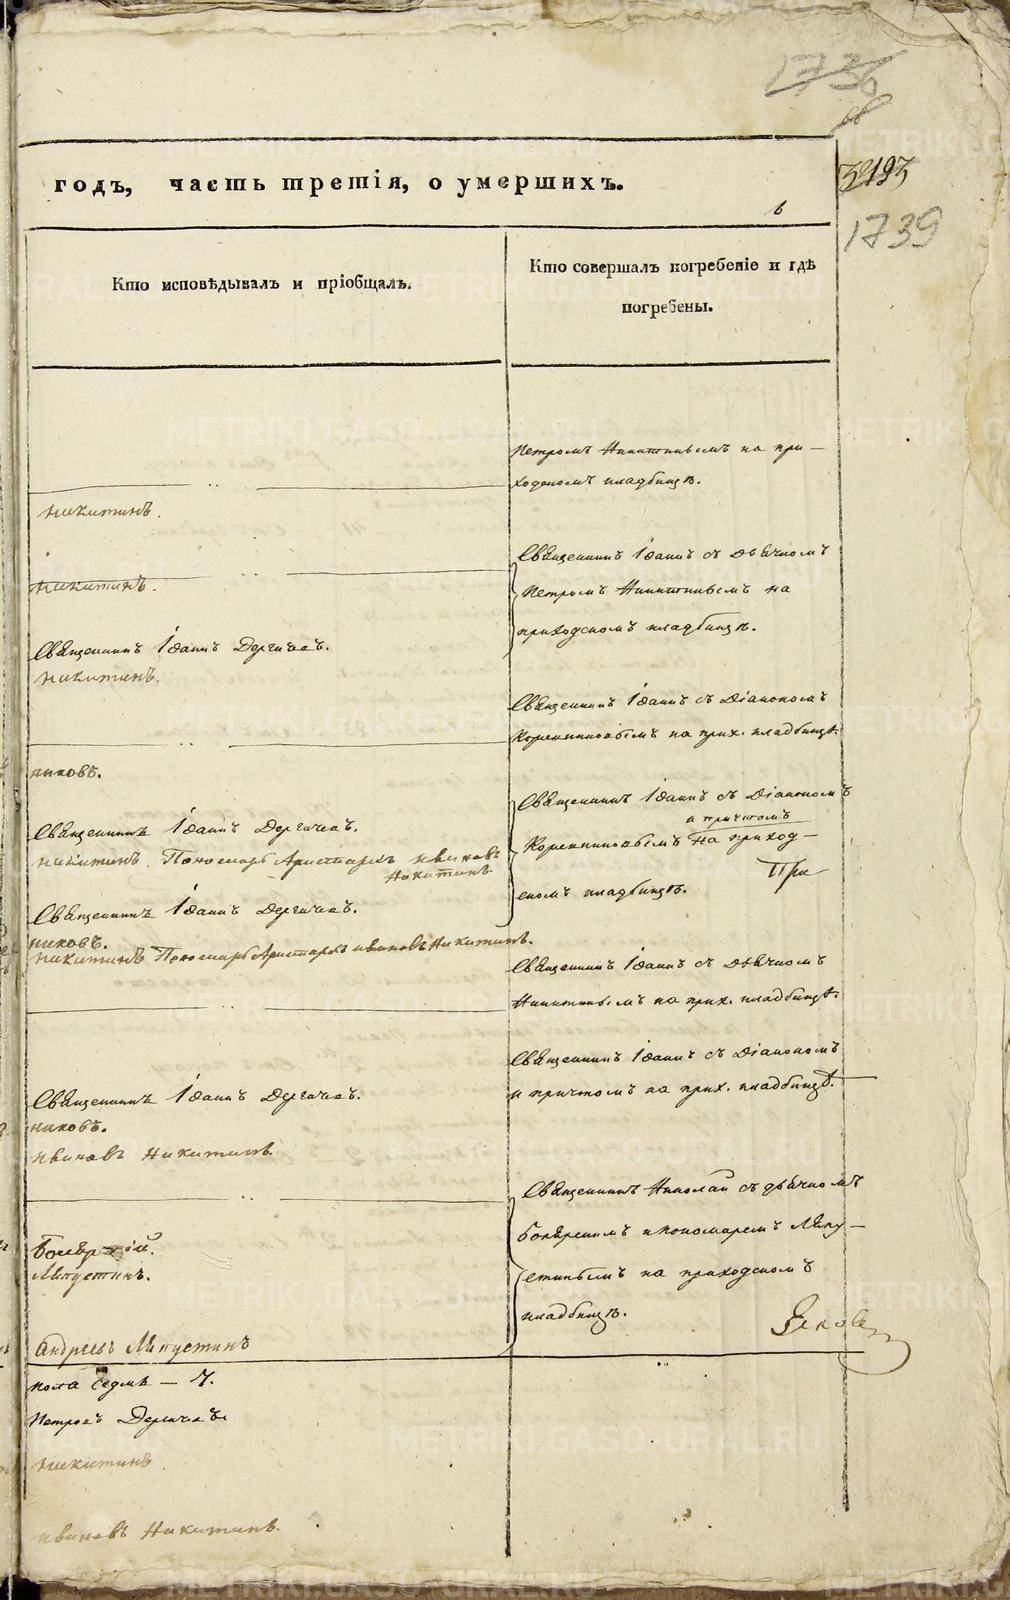 1736
66
годъ, часть третія, о умершихъ.
193
1739
Кто исповѣдывалъ и пріобщалъ.
Кто совершалъ погребеніе и гдѣ
погребены.
Петромъ Никитинымъ на при-
ходскомъ кладбищѣ.
Никитинъ.
Священникъ Іоаннъ съ дьячкомъ
Никитинъ.
Петромъ Никитинымъ на
приходскомъ кладбищѣ.
Священникъ Іоаннъ Дергачевъ.
Никитинъ.
Священникъ Іоаннъ съ Діакономъ
на прих. кладбищѣ.
никовъ.
Священникъ Іоаннъ съ Діакономъ
и причтомъ
на приход-
скомъ кладбищѣ.
При
Священникъ Іоаннъ Дергачевъ.
Никитинъ. Пономарь Аристархъ Ивановъ
Никитинъ
Священникъ Іоаннъ Дергачевъ.
никовъ.
Никитинъ Пономарь Аристархъ Ивановъ Никитинъ.
Священникъ Іоаннъ съ дьячкомъ
Никитинымъ на прих. кладбищѣ.
Священникъ Іоаннъ съ Діакономъ
и причтомъ на прих. кладбищѣ.
Священникъ Іоаннъ Дергачевъ.
никовъ.
Ивановъ Никитинъ.
Священникъ Николай съ дьячкомъ
и пономаремъ Лапу-
стинымъ на приходскомъ
кладбищѣ.
Лапустинъ.
Андреевъ Лапустинъ
пола седмь — 7.
Петровъ Дергачевъ
Никитинъ
Ивановъ Никитинъ.
METRIKI.GASO-URAL.RU